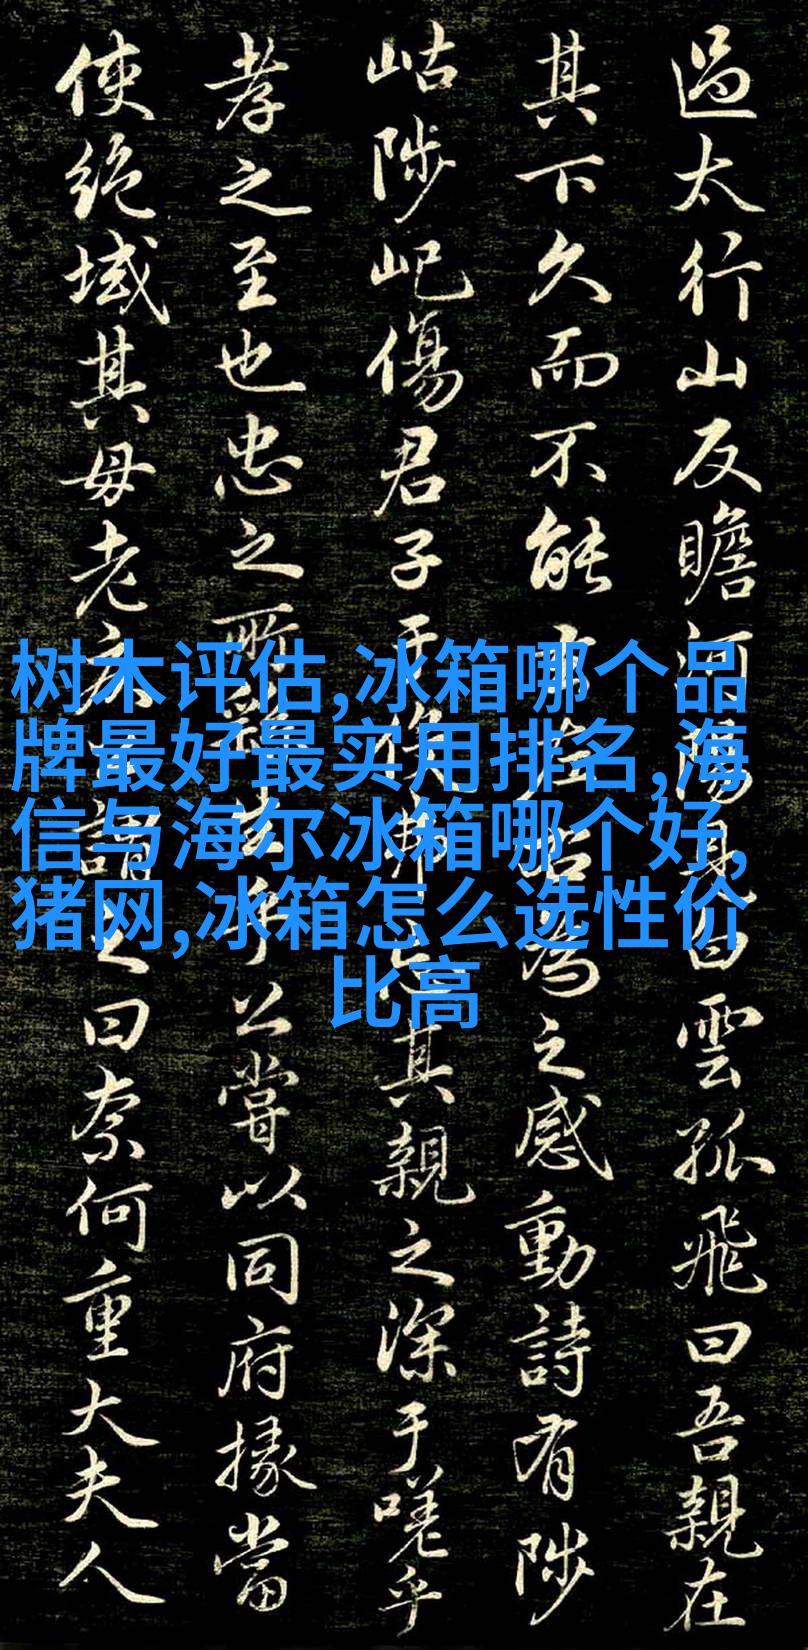 過太行山反瞻河陽見白雲孤飛曰吾親在
其下久而不能去左右為之感動詩有陟
岵陟屺傷君子于役弗忘其親之深于嗟乎
孝之至也忠之所繇生乎公嘗以同府掾當
使絕域其母老疾公謂之曰奈何重大夫人
树木评估,冰箱哪个品
牌最好最实用排名,海
信与海尔冰箱哪个好,
猪网,冰箱怎么选性价
比高